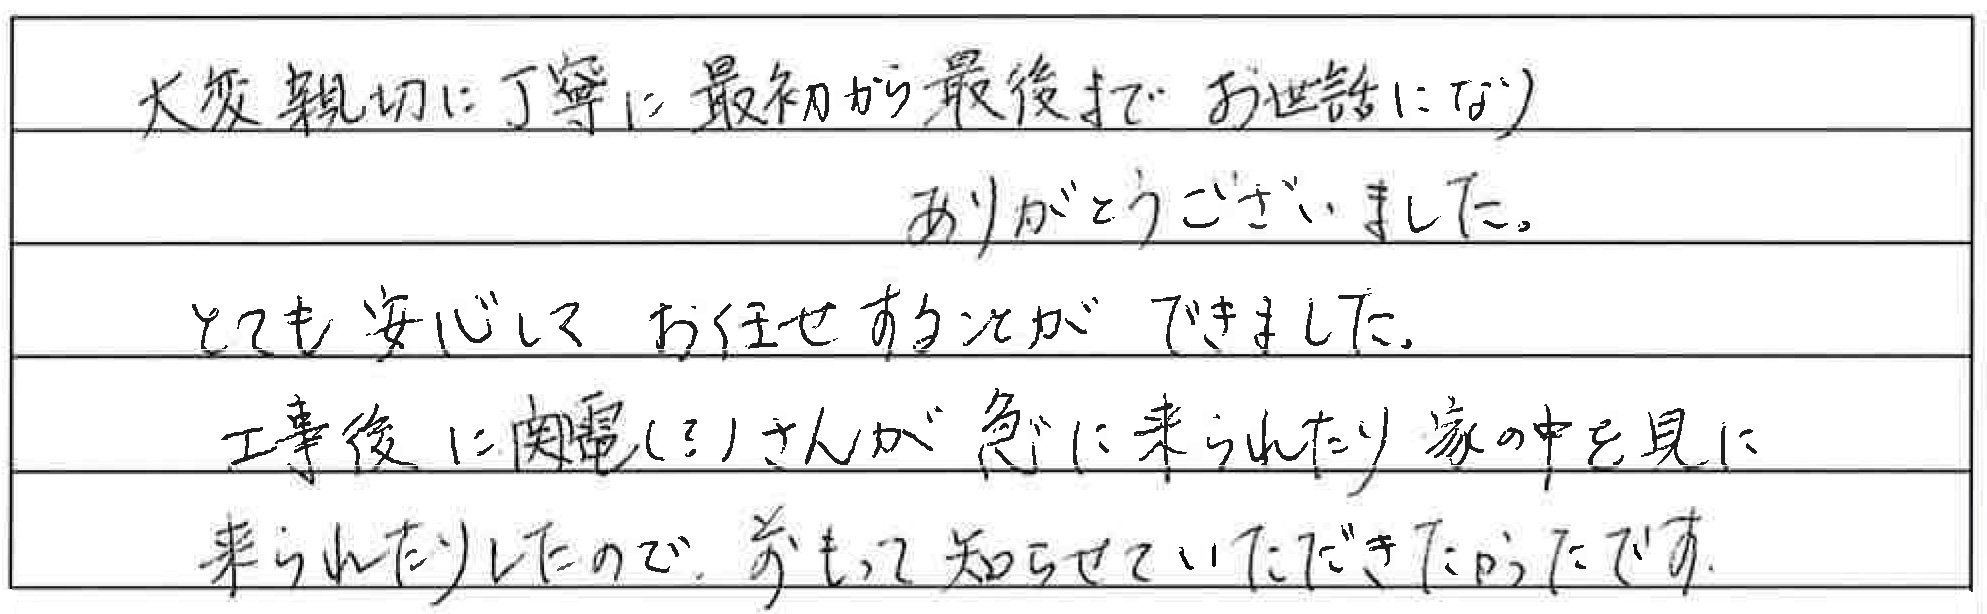 大変親切に丁寧に最初から最後まで お世話になり
ありがとうございました。
とても安心して お任せすることが できました。
工事後に関電(?)さんが 急に来られたり 家の中を見に
来られたりしたので、前もって知らせていただきたかったです。